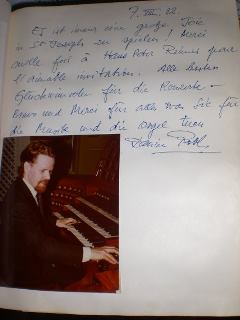 7. VIII. 22
Es ist immer eine große Joie
in St Joseph zu spielen ! Merci
mille fois à Hans Peter pour
l'aimable invitation. Alle besten
Glückwünsche für die Konzerte -
Bravo und Merci für alles was Sie für
die Musik und die Orgel tuen
Daniel Roth